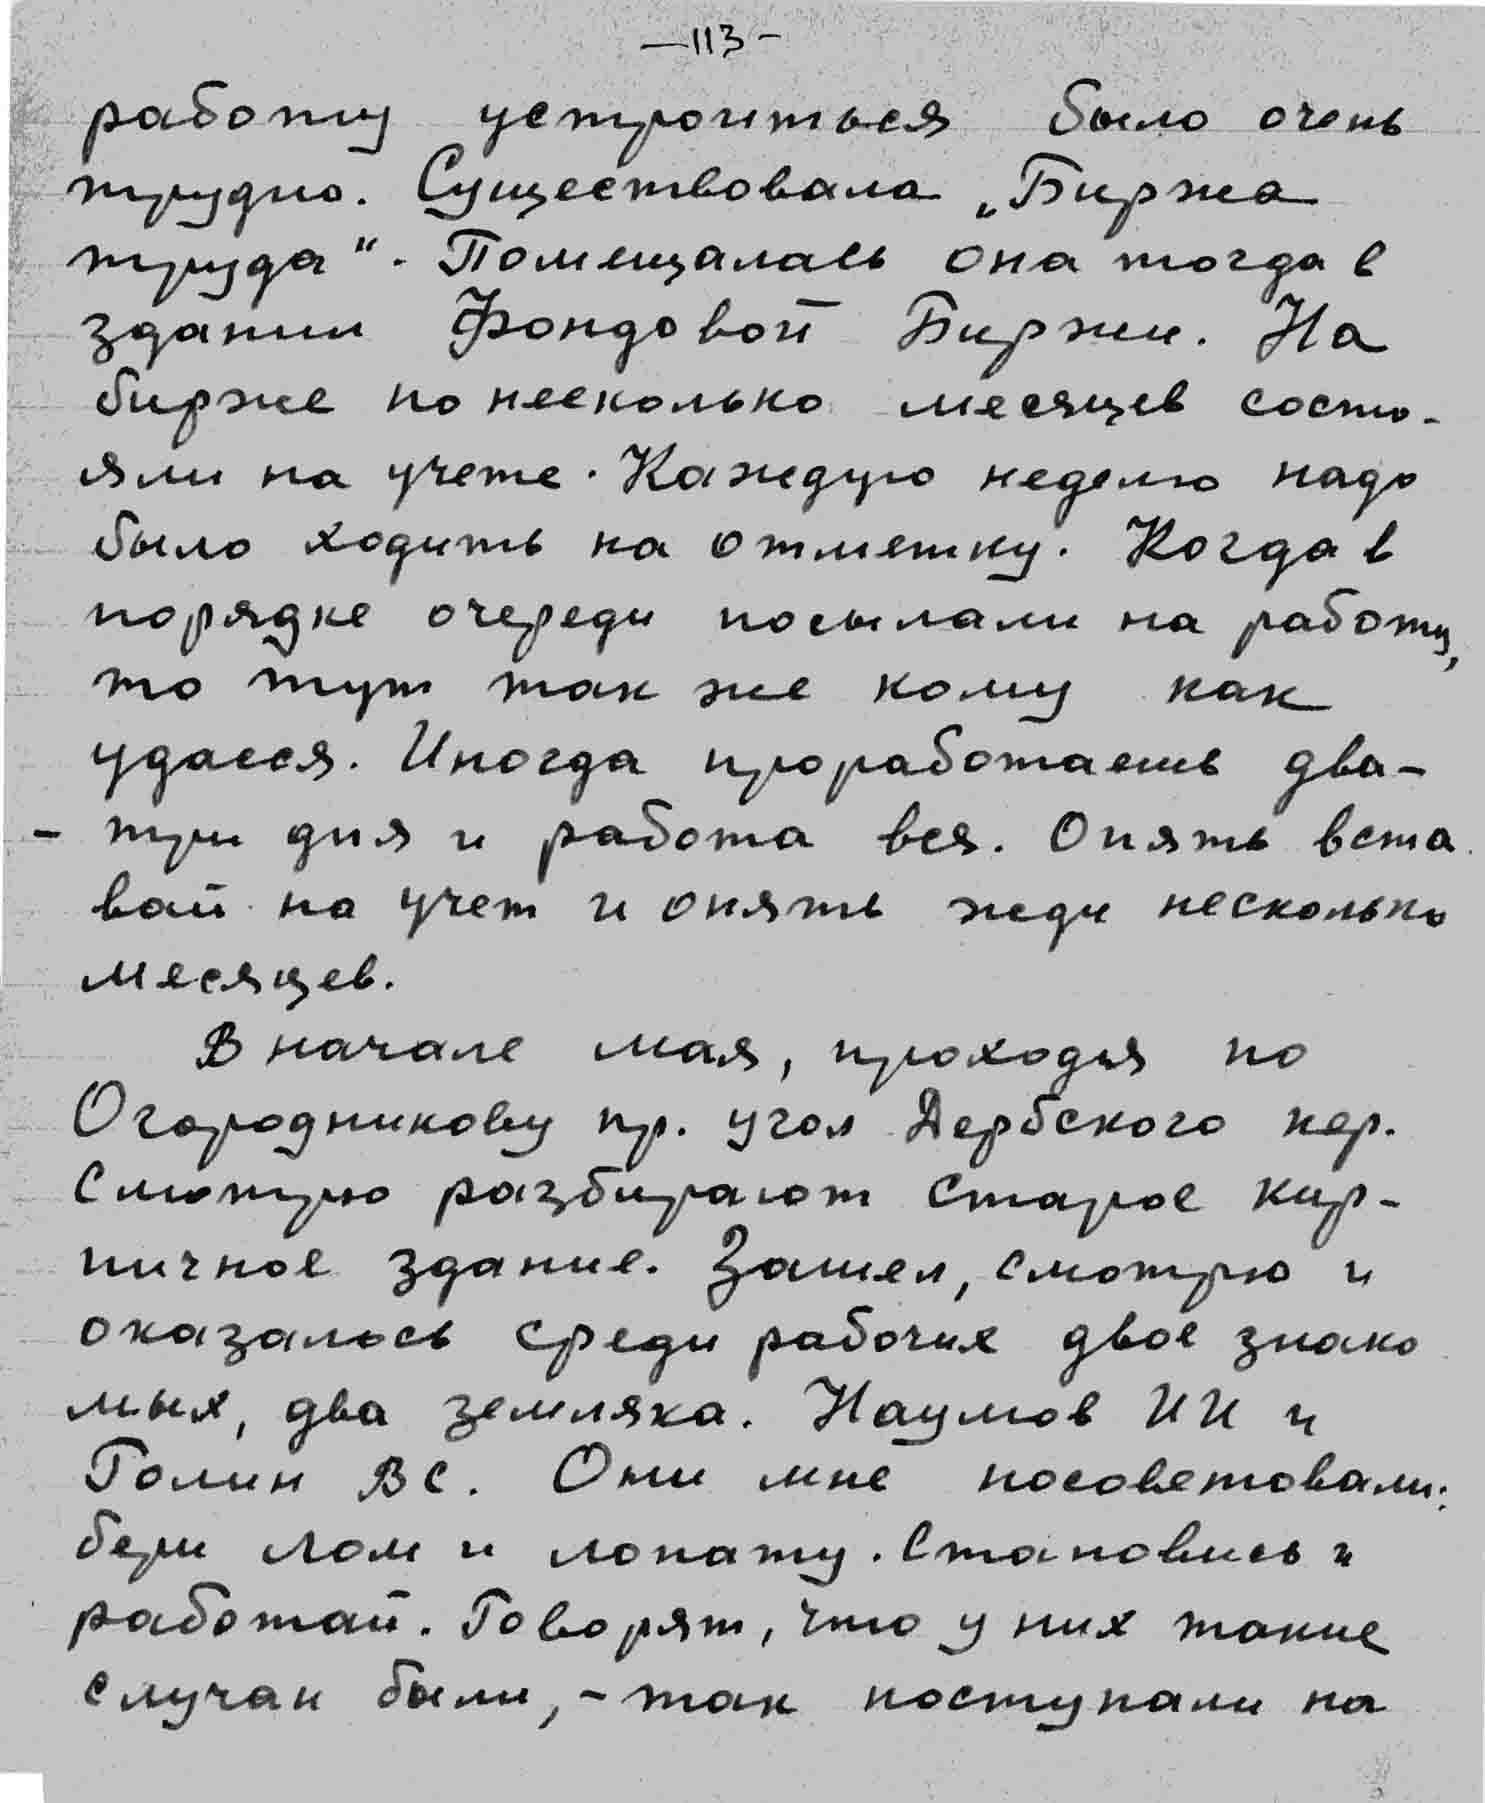 -113-
работу устроиться было очень
трудно. Существовала „Биржа
труда“. Помещалась она тогда в
здании Фондовой Биржи. На
бирже по несколько месяцев состо-
яли на учете. Каждую неделю надо
было ходить на отметку. Когда в
порядке очереди посылали на работу,
то тут так же кому как
удасся. Иногда проработаешь два-
- три дня и работа вся. Опять вста
вай на учет и опять жди несколько
месяцев.
В начале мая, проходя по
Огородникову пр. угол Дербского пер.
Смотрю разбирают старое кир-
пичное здание. Зашел, смотрю и
оказалось среди рабочих двое знако
мых, два земляка. Наумов ИИ и
Голин ВС. Они мне посоветовали:
бери лом и лопату. Становись и
работай. Говорят, что у них такие
случаи были, - так поступали на